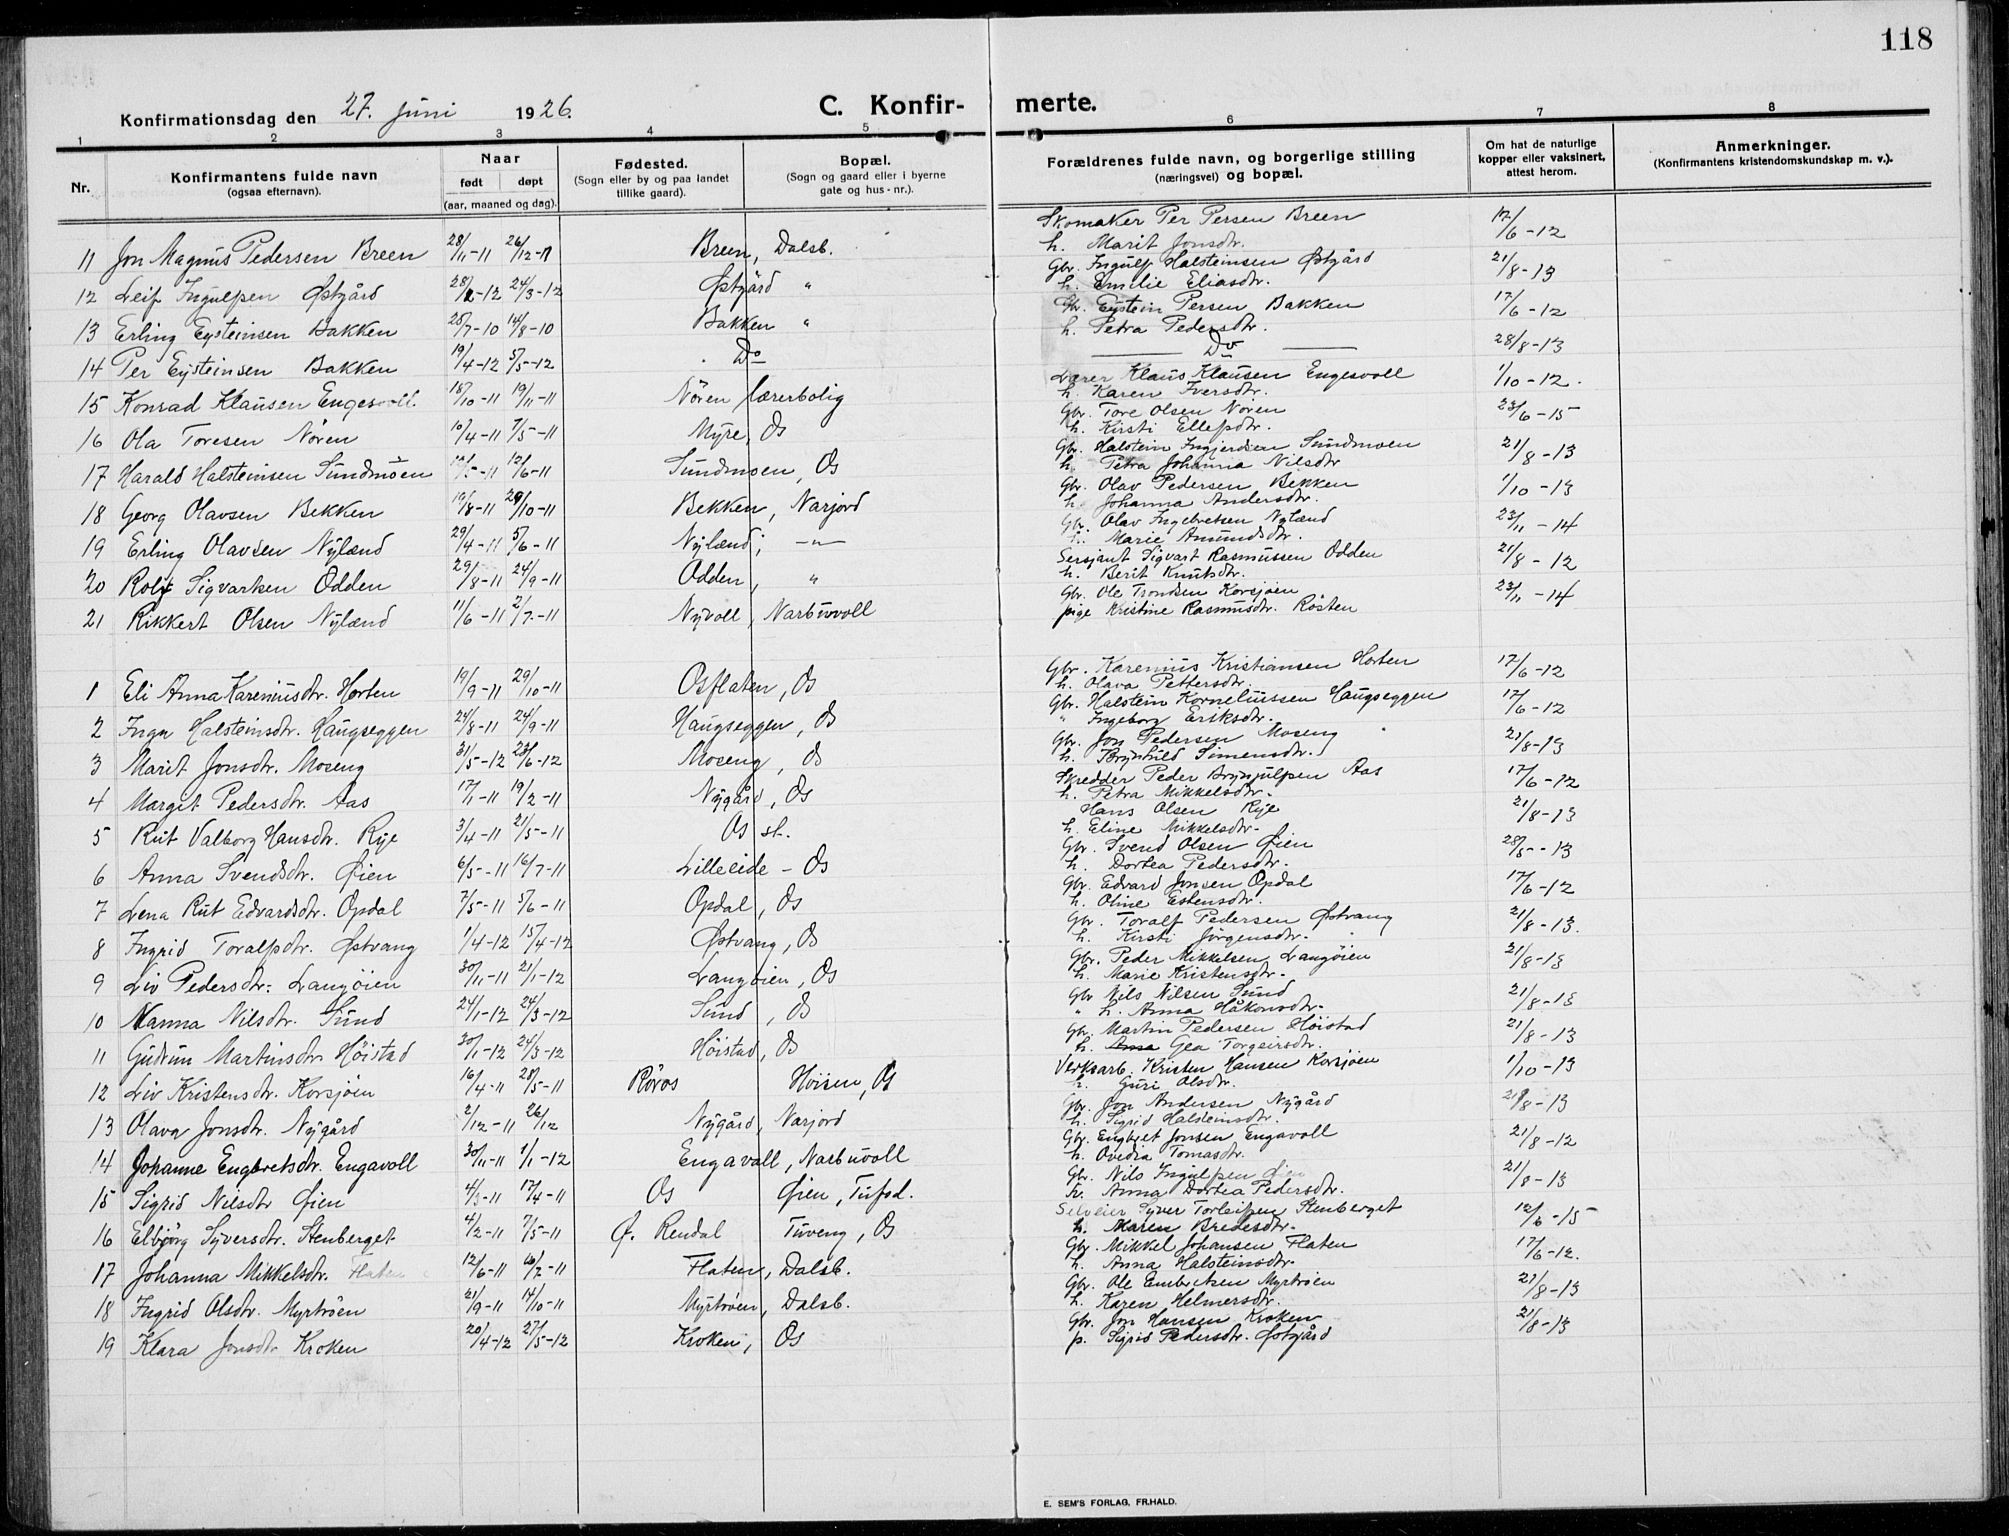 118
Konfirmationsdag den 27. Juni 1926.
C. Konfir- merte.
1 2 3 4 5 6 7 8
Nr.
Konfirmantens fulde navn (ogsaa efternavn).
Naar født døpt (aar, maaned og dag).
Fødested. (Sogn eller by og paa landet tillike gaard).
Bopæl. (Sogn og gaard eller i byerne gate og hus-nr.).
Forældrenes fulde navn, og borgerlige stilling (næringsvei) og bopæl.
Om hat de naturlige kopper eller vaksinert, attest herom.
Anmerkninger. (Konfirmantens kristendomskundskap m. v.).
11 Jon Magnus Pedersen Breen 28/11-11 26/12-11 Breen, Dalsb. Skomaker Per Persen Breen 17/6-12
h. Marit Jonsdtr.
12 Leif Ingulfsen Østgård 28/2-12 24/3-12 Østgård " Gbr. Ingulf Halsteinsen Østgård 21/8-13
h. Emilie Eliasdtr.
13 Erling Eysteinsen Bakken 28/7-10 14/8-10 Bakken " Gbr. Eystein Persen Bakken 17/6-12
h. Petra Pedersdtr.
14 Per Eysteinsen Bakken 19/4-12 5/5-12 Do Do 28/8-13
15 Konrad Klausen Engesvoll 18/10-11 19/11-11 Nören lærerbolig Lærer Klaus Klausen Engesvoll 1/10-12.
h. Karen Iversdtr.
16 Ola Toresen Nören 10/4-11 7/5-11 Myre, Os Gbr. Tore Olsen Nören 23/6-15
h. Kirsti Ellefsdtr.
17 Harald Halsteinsen Sundmoen /5-11 /6-11 Sundmoen, Os Gbr. Halstein Ingjerdsen Sundmoen 21/8-13
h. Petra Johanna Nilsdtr
18 Georg Olavsen Bekken 19/8-11 29/10-11 Bekken, Narjord Gbr. Olav Pedersen Bekken 1/10-13
h. Johanna Andersdtr.
19 Erling Olavsen Nylænd 29/4-11 5/6-11 Nylænd, -"- Gbr. Olav Ingebretsen Nylænd 23/11-14
h. Marie Amundsdtr.
20 Rolf Sigvartsen Odden 29/8-11 24/9-11 Odden, " Sersjant Sigvart Rasmussen Odden 21/8-12
h. Berit Knutsdtr.
21 Rikkert Olsen Nylænd 11/6-11 2/7-11 Nyvoll, Narbuvoll Gbr. Ole Trondsen Korsjøen 23/11-14
pige Kristine Rasmusdtr. Røsten
1 Eli Anna Kareniusdtr. Horten 19/9-11 29/10-11 Osflaten, Os Gbr. Karenius Kristiansen Horten 17/6-12
h. Olava Pettersdtr.
2 Inga Halsteinsdtr. Haugseggen 24/8-11 24/9-11 Haugseggen, Os Gbr. Halstein Korneliussen Haugseggen 17/6-12
" Ingeborg Eriksdtr.
3 Marit Jonsdtr. Moseng 31/5-12 23/6-12 Moseng, Os Gbr. Jon Pedersen Moseng 21/8-13
h. Brynhild Simensdtr.
4 Margit Pedersdtr. Aas 17/1-11 19/2-11 Nygård, Os Skredder Peder Brynjulfsen Aas 17/6-12
h. Petra Mikkelsdtr.
5 Rut Valborg Hansdtr. Rye 3/4-11 21/5-11 Os st. Hans Olsen Rye 21/8-13
h. Eline Mikkelsdtr.
6 Anna Svendsdtr. Øien 6/5-11 16/7-11 Lilleeide - Os Gbr. Svend Olsen Øien 28/8-13
h. Dortea Pedersdtr.
7 Lena Rut Edvardsdtr. Opdal 7/5-11 5/6-11 Opdal, Os Gbr. Edvard Jonsen Opdal 17/6-12
h. Oline Estensdtr.
8 Ingrid Toralfsdtr. Østvang 1/4-12 15/4-12 Østvang, Os Gbr. Toralf Pedersen Østvang 21/8-13.
h. Kirsti Jörgensdtr.
9 Liv Pedersdtr. Langøien 30/11-11 21/1-12 Langøien, Os Gbr. Peder Mikkelsen Langøien 21/8-13
h. Marie Kristensdtr.
10 Nanna Nilsdtr. Sund 24/1-12 24/3-12 Sund, Os Gbr Nils Nilsen Sund 21/8-13
" h. Anna Håkonsdtr.
11 Gudrun Martinsdtr Höistad 30/1-12 24/3-12 Höistad, Os Gbr. Martin Pedersen Höistad 21/8-13
h. Gea Torgeirsdtr.
12 Liv Kristensdtr. Korsjøen 16/4-11 28/5-11 Röros Höisen, Os Verksarb. Kristen Hansen Korsjøen 1/10-13
h. Guri Olsdtr.
13 Olava Jonsdtr. Nygård 2/12-11 26/12 Nygård, Narjord Gbr. Jon Andersen Nygård 21/8-13
h. Sigrid Halsteinsdtr.
14 Johanne Engbretsdtr. Engavoll 30/11-11 1/1-12 Engavoll, Narbuvoll Gbr. Engbret Jonsen Engavoll 21/8-12
h. Ovedia Tomasdtr.
15 Sigrid Nilsdtr Øien 4/3-11 17/4-11 Os Øien, Tufsd. Gbr. Nils Ingulfsen Øien 21/8-13
h. Anna Dortea Pedersdtr.
16 Elbjörg Syversdtr. Stenberget 4/2-11 7/5-11 Ø. Rendal Tuveng, Os Selveier Syver Torleifsen Stenberget 12/6-15
h. Maren Bredesdtr.
17 Johanna Mikkelsdtr. Flaten 12/6-11 16/7-11 Flaten, Dalsb. Gbr. Mikkel Johansen Flaten 17/6-12.
h. Anna Halsteinsdtr.
18 Ingrid Olsdtr. Myrtröen 21/9-11 14/10-11 Myrtröen, Dalsb. Gbr. Ole Embretsen Myrtröen 21/8-13
h. Karen Helmersdtr.
19 Klara Jonsdtr Kroken 20/4-12 27/5-12 Kroken, Os Gbr. Jon Hansen Kroken 21/8-13
p. Sigrid Pedersdtr. Østgård
E. SEM'S FORLAG, FR.HALD.